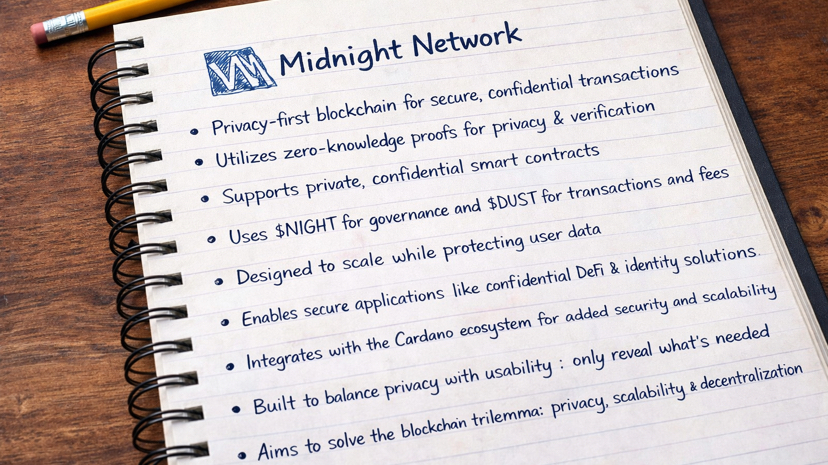 Midnight Network
• Privacy-first blockchain for secure, confidential transactions
• Utilizes zero-knowledge proofs for privacy & verification
• Supports private, confidential smart contracts
• Uses $NIGHT for governance and $DUST for transactions and fees
• Designed to scale while protecting user data
• Enables secure applications like confidential DeFi & identity solutions.
• Integrates with the Cardano ecosystem for added security and scalability
• Built to balance privacy with usability : only reveal what's needed
• Aims to solve the blockchain trilemma: privacy, scalability & decentralization